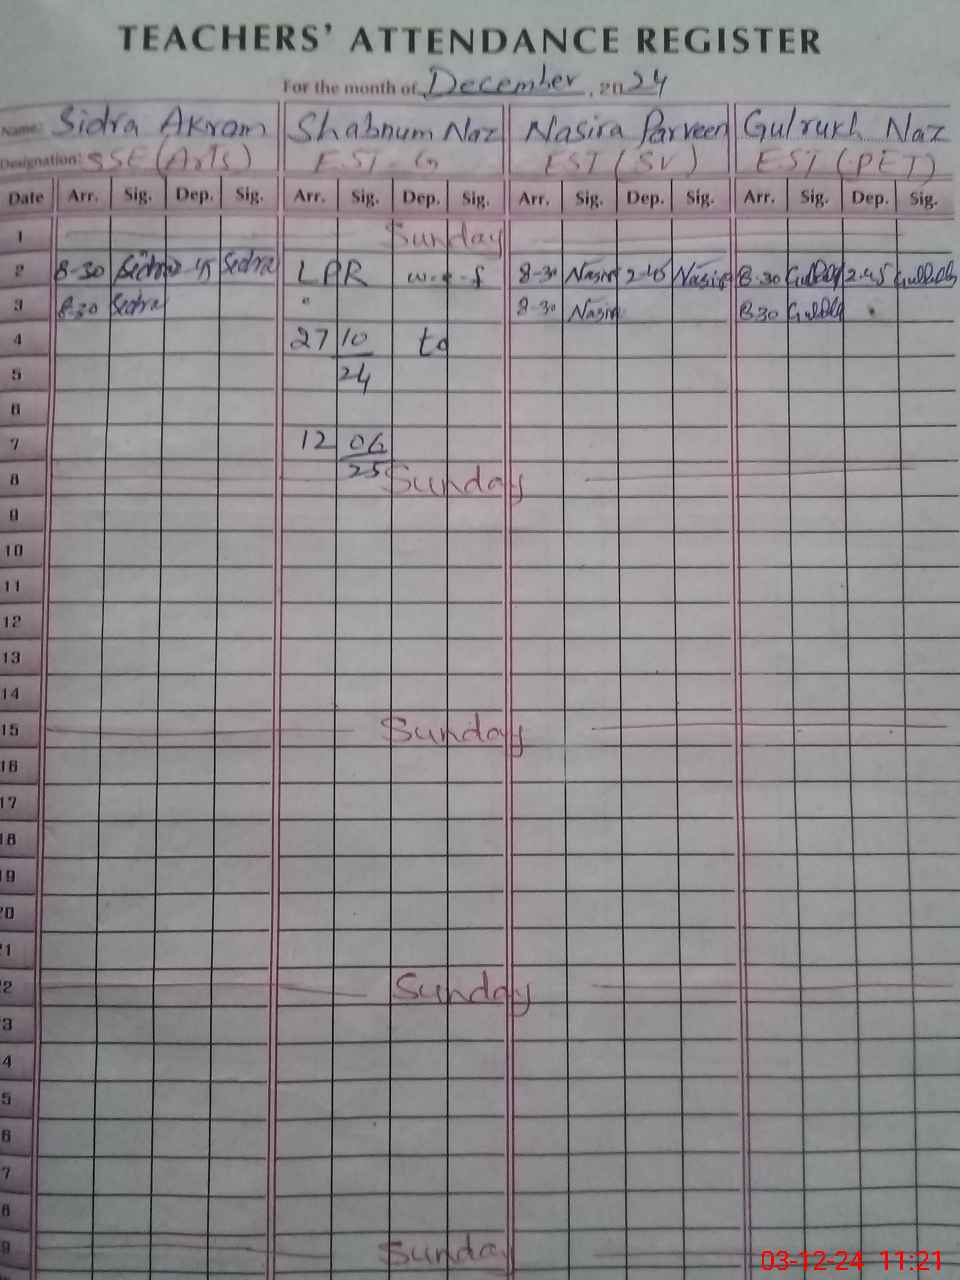 TEACHERS' ATTENDANCE REGISTER
For the month of December, 2024
Name: Sidra Akram Shabnum Naz Nasira Parveen Gulrukh Naz
Designation: SSE (Arts) EST - G EST (SV) EST (PET)
Date Arr. Sig. Dep. Sig. Arr. Sig. Dep. Sig. Arr. Sig. Dep. Sig. Arr. Sig. Dep. Sig.
1 Sunday
2 8-30 Sidra 2-45 Sidra LPR w.e.f 8-30 Nasira 2-45 Nasira 8-30 2-45
3 8-30 Sidra 8-30 Nasira 8-30
4 27 10 to
5 24
6
7 12 06
8 25 Sunday
9
10
11
12
13
14
15 Sunday
16
17
18
19
20
21
2 Sunday
3
4
5
6
7
8
9 Sunday
03-12-24 11:21